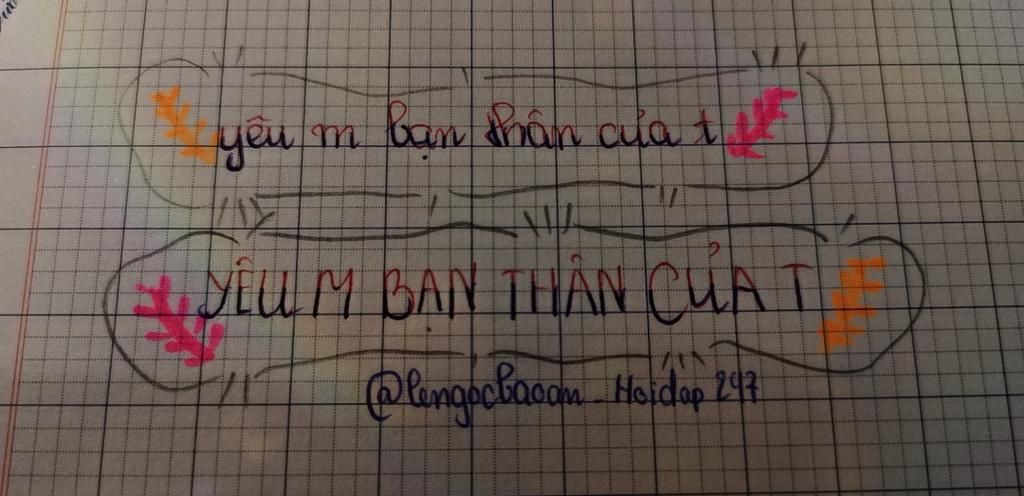 yêu m bạn thân của t
YÊU M BẠN THÂN CỦA T
@lengocbaoan_Hoidap247